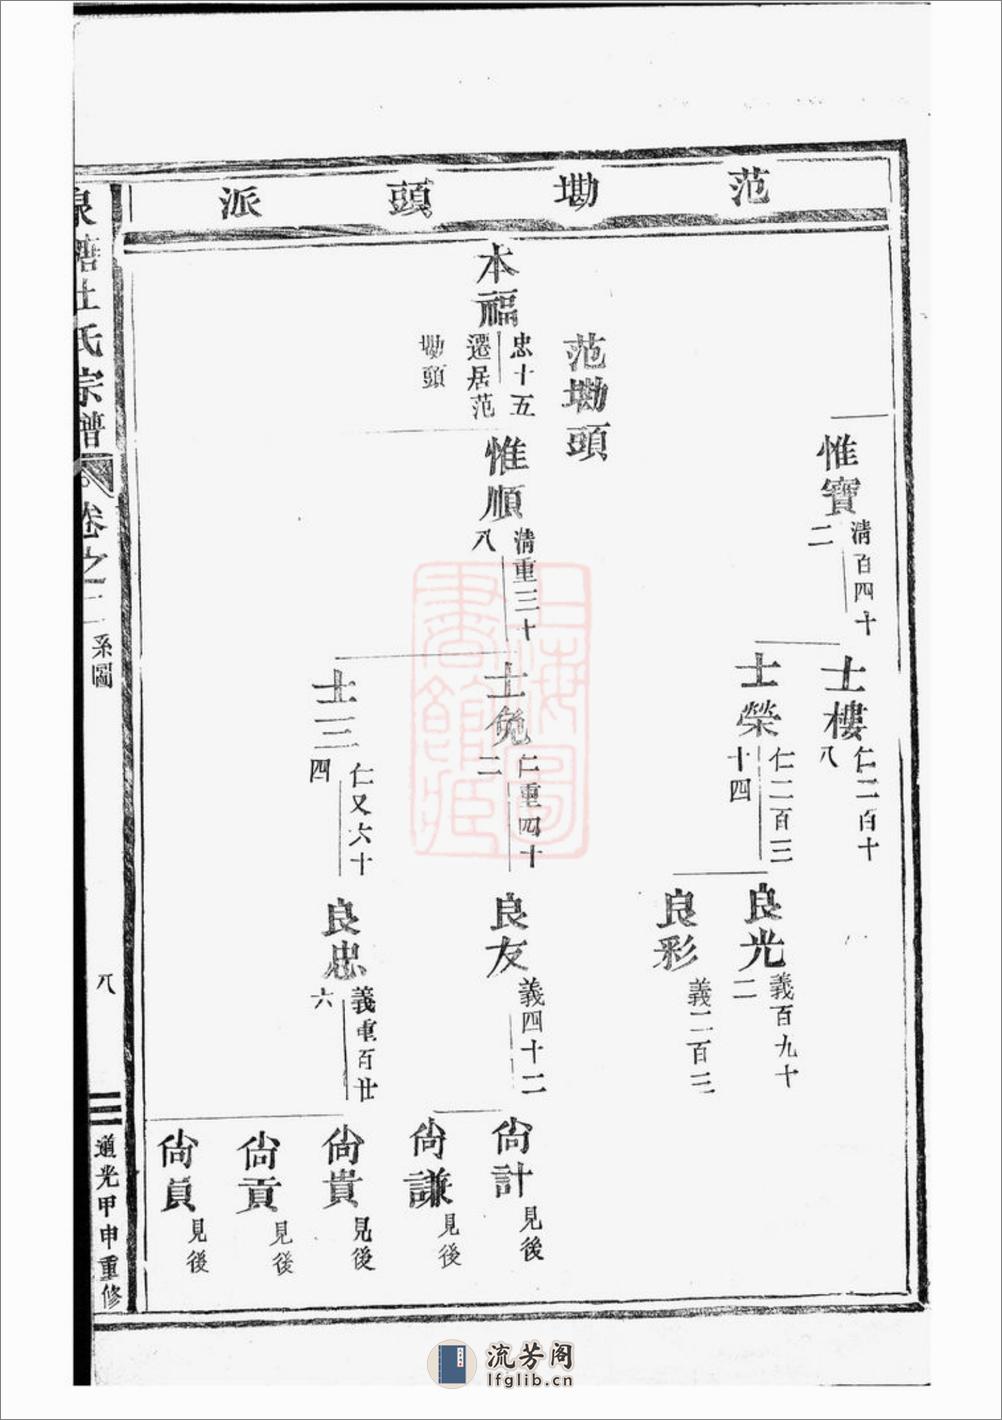 范墈頭派
惟寶
清百四十二
士樓
仁二百十八
士榮
仁二百三十四
良光
義百九十二
良彩
義二百三
范墈頭
本福
忠十五
遷居范墈頭
惟順
清重三十八
士兔
仁重四十二
良友
義四十二
尙計
見後
尙謙
見後
士三
仁又六十四
良忠
義重百廿六
尙貴
見後
尙貢
見後
尙貟
見後
杜氏宗譜
卷之二
系圖
八
道光甲申重修
上海圖書館藏
流芳阁
lfglib.cn